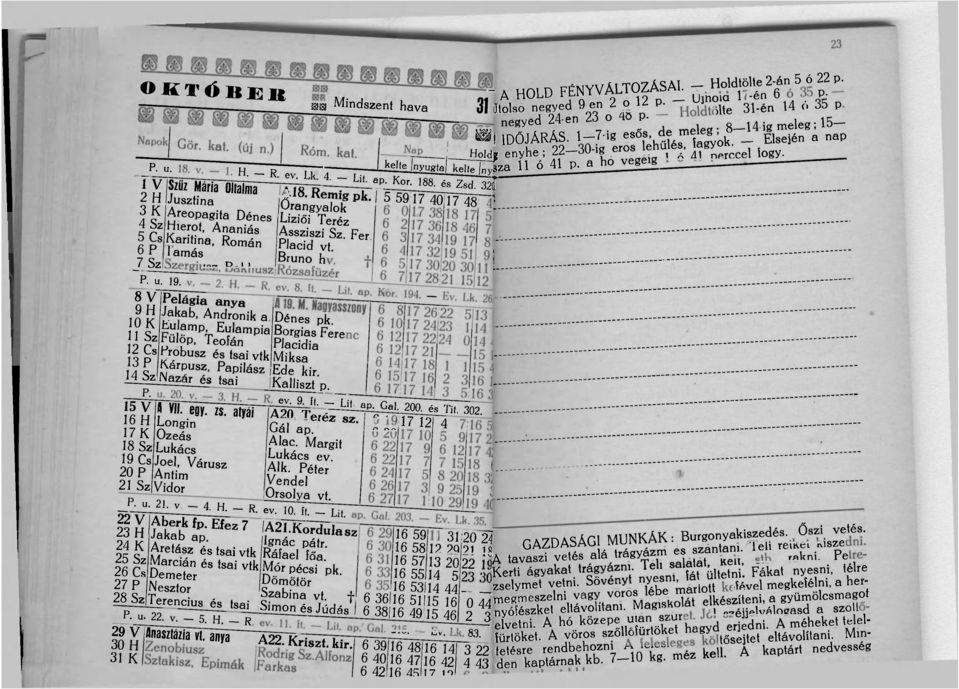 OKTÓBER
Mindszent hava 31
Napok Gör. kat. (új n.) Róm. kat. Nap Hold
kelte nyugta kelte
P. u. 18. v. — 1. H. — R. ev. Lk. 4. — Lit. ap. Kor. 188. és Zsd. 32
1 V Szűz Mária Oltalma A 18. Remig pk. 5 59 17 40 17 48
2 H Jusztina Őrangyalok 6 0 17 38 18 17 5
3 K Areopagita Dénes Liziői Teréz 6 2 17 36 18 46 7
4 Sz Hierot, Ananiás Assziszi Sz. Fer 6 3 17 34 19 17 8
5 Cs Karitina, Román Placid vt. 6 4 17 32 19 51 9
6 P Tamás Bruno hv. † 6 5 17 30 20 30 11
7 Sz Szergiusz, Bakhusz Rózsafüzér 6 7 17 28 21 15 12
P. u. 19. v. — 2. H. — R. ev. 8. ft. — Lit. ap. Kor. 194. — Ev. Lk. 26
8 V Pelágia anya A 19. M. Nagyasszony 6 8 17 26 22 5 13
9 H Jakab, Andronik a. Dénes pk. 6 10 17 24 23 1 14
10 K Eulamp, Eulampia Borgias Ferenc 6 12 17 22 24 0 14
11 Sz Fülöp, Teofán Placidia 6 12 17 21 — — 15
12 Cs Probusz és tsai vtk Miksa 6 14 17 18 1 1 15
13 P Kárpusz, Papilász Ede kir. 6 15 17 16 2 3 16
14 Sz Nazár és tsai Kalliszt p. 6 17 17 14 3 5 16
P. u. 20. v. — 3. H. — R. ev. 9. ft. — Lit. ap. Gal. 200. és Tit. 302.
15 V A VII. egy. zs. atyái A20. Teréz sz. 6 19 17 12 4 7 16
16 H Longin Gál ap. 6 20 17 10 5 9 17
17 K Ozeás Alac. Margit 6 22 17 9 6 12 17
18 Sz Lukács Lukács ev. 6 22 17 7 7 15 18
19 Cs Joel, Várusz Alk. Péter 6 24 17 5 8 20 18
20 P Antim Vendel 6 26 17 3 9 25 19
21 Sz Vidor Orsolya vt. 6 27 17 1 10 29 19
P. u. 21. v. — 4. H. — R. ev. 10. ft. — Lit. ap. Gal. 203. — Ev. Lk. 35.
22 V Aberk fp. Efez 7 A21. Kordula sz 6 29 16 59 11 31 20 24
23 H Jakab ap. Ignác pátr. 6 30 16 58 12 29 21
24 K Aretász és tsai vtk Ráfael főa. 6 31 16 57 13 20 22
25 Sz Marcián és tsai vtk Mór pécsi pk. 6 33 16 55 14 5 23 30
26 Cs Demeter Dömötör 6 35 16 53 14 44 — —
27 P Nesztor Szabina vt. † 6 36 16 51 15 16 0 44
28 Sz Terencius és tsai Simon és Júdás 6 38 16 49 15 46 2 3
P. u. 22. v. — 5. H. — R. ev. 11. ft. — Lit. ap. Gal. 215. — Ev. Lk. 83.
29 V Anasztázia vt. anya A22. Kriszt. kir. 6 39 16 48 16 14 3 22
30 H Zenobiusz Rodrig Sz. Alfonz 6 40 16 47 16 42 4 43
31 K Sztakisz, Epimák Farkas 6 42 16 45 17
23
A HOLD FÉNYVÁLTOZÁSAI. — Holdtölte 2-án 5 ó 22 p.
utolso negyed 9 en 2 o 12 p. — Ujhold 17-én 6 ó 35 p. —
negyed 24-en 23 o 48 p. — Holdtölte 31-én 14 ó 35 p.
IDŐJÁRÁS. 1—7-ig esős, de meleg; 8—14 ig meleg; 15—
enyhe; 22—30-ig eros lehűlés, fagyok. — Elsején a nap
11 ó 41 p. a hó végéig 1 ó 41 perccel fogy.
GAZDASÁGI MUNKÁK: Burgonyakiszedés. Őszi vetés.
A tavaszi vetés alá trágyázm es szantani. Teli
Kerti ágyakat trágyázni. Teli salátát, kelt, rakni. Petre-
zselymet vetni. Sövényt nyesni, fát ültetni. Fákat nyesni, télre
megmeszelni vagy vörös lébe mártott kefével megkefélni, a her-
nyófészket eltávolítani. Magiskolát elkészíteni, a gyümölcsmagot
elvetni. A hó közepe után szüret. széjjelválogasd a szőllő-
fürtöket. A vörös szőllőfürtöket hagyd erjedni. A méheket telel-
tetésre rendbehozni A felesleges költősejtet eltávolítani. Min-
den kaptárnak kb. 7—10 kg. méz kell. A kaptárt nedvesség